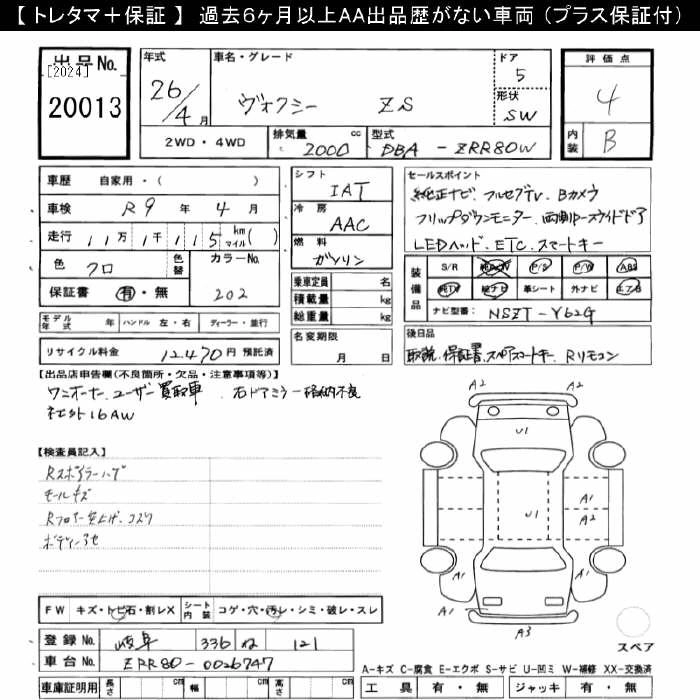 【トレタマ＋保証】 過去6ヶ月以上AA出品歴がない車両（プラス保証付）
出品No. [2024] 20013
年式 26/4月
車名・グレード ヴォクシー ZS
ドア 5
形状 SW
評価点 4
内装 B
2WD・4WD
排気量 2000 cc
型式 DBA - ZRR80W
車歴 自家用・( )
車検 R9年4月
走行 11万1千115 km マイル( )
色 クロ 色替
カラーNo. 202
保証書 有・無
モデル年式 年 ハンドル 左・右 ディーラー・並行
リサイクル料金 12,470円 預託済
シフト IAT
冷房 AAC
燃料 ガソリン
乗車定員 名
積載量 kg
総重量 kg
名変期限 月 日
セールスポイント
純正ナビ、フルセグTV、Bカメラ
フリップダウンモニター、両側パースライドドア
LEDヘッド、ETC、スマートキー
装備品 S/R P/S P/W ABS
純TV 純ナビ 革シート 外ナビ エアB
ナビ型番: NSZT-Y62G
後日品
取説、保証書、スペアスマートキー、Rリモコン
【出品店申告欄(不良箇所・欠品・注意事項等)】
ワンオーナー、ユーザー買取車、右ドアミラー格納不良
社外16AW
【検査員記入】
Rスポイラーハゲ
モールキズ
ボディーアセ
FW キズ・トビ石・割レX シート内装 コゲ・穴・汚レ・シミ・破レ・スレ
登録No. 岐阜 336 ね 121
車台No. ZRR80-0026747
車庫証明用 長さ cm 幅 cm 高さ cm
A2
A2
U1
U1
A1
A2
A1
A1
A3
スペア
A-キズ C-腐食 E-エクボ S-サビ U-凹ミ W-補修 XX-交換済
工具 有・無 ジャッキ 有・無